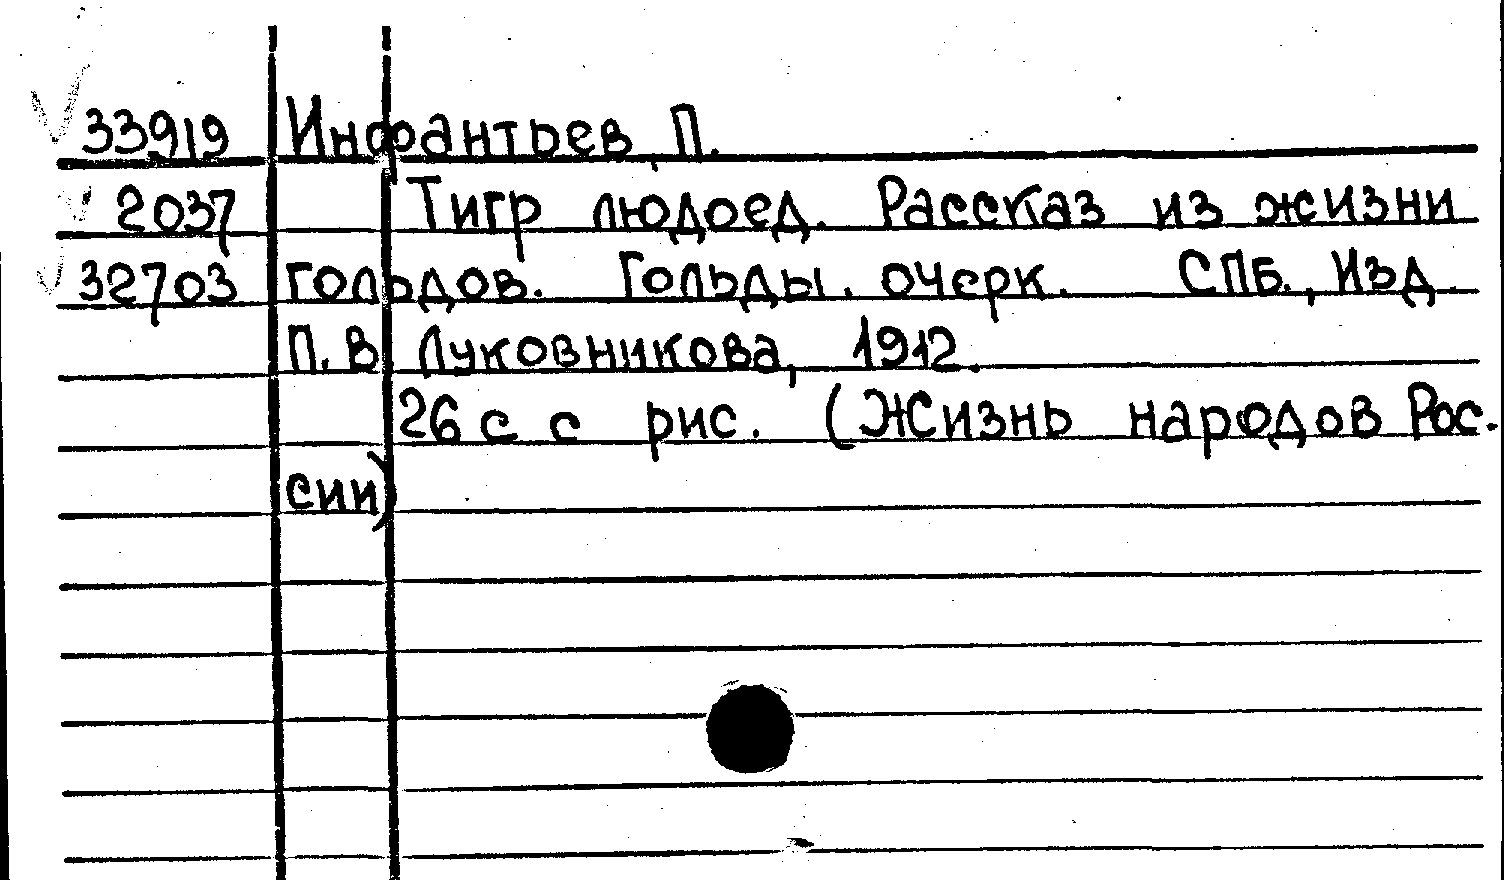 33919 Инфантьев, П.
2037 Тигр людоед. Рассказ из жизни
32703 гольдов. Гольды. очерк. СПБ., Изд.
П.В. Луковникова, 1912.
26 с с рис. (Жизнь народов Рос.
сии)